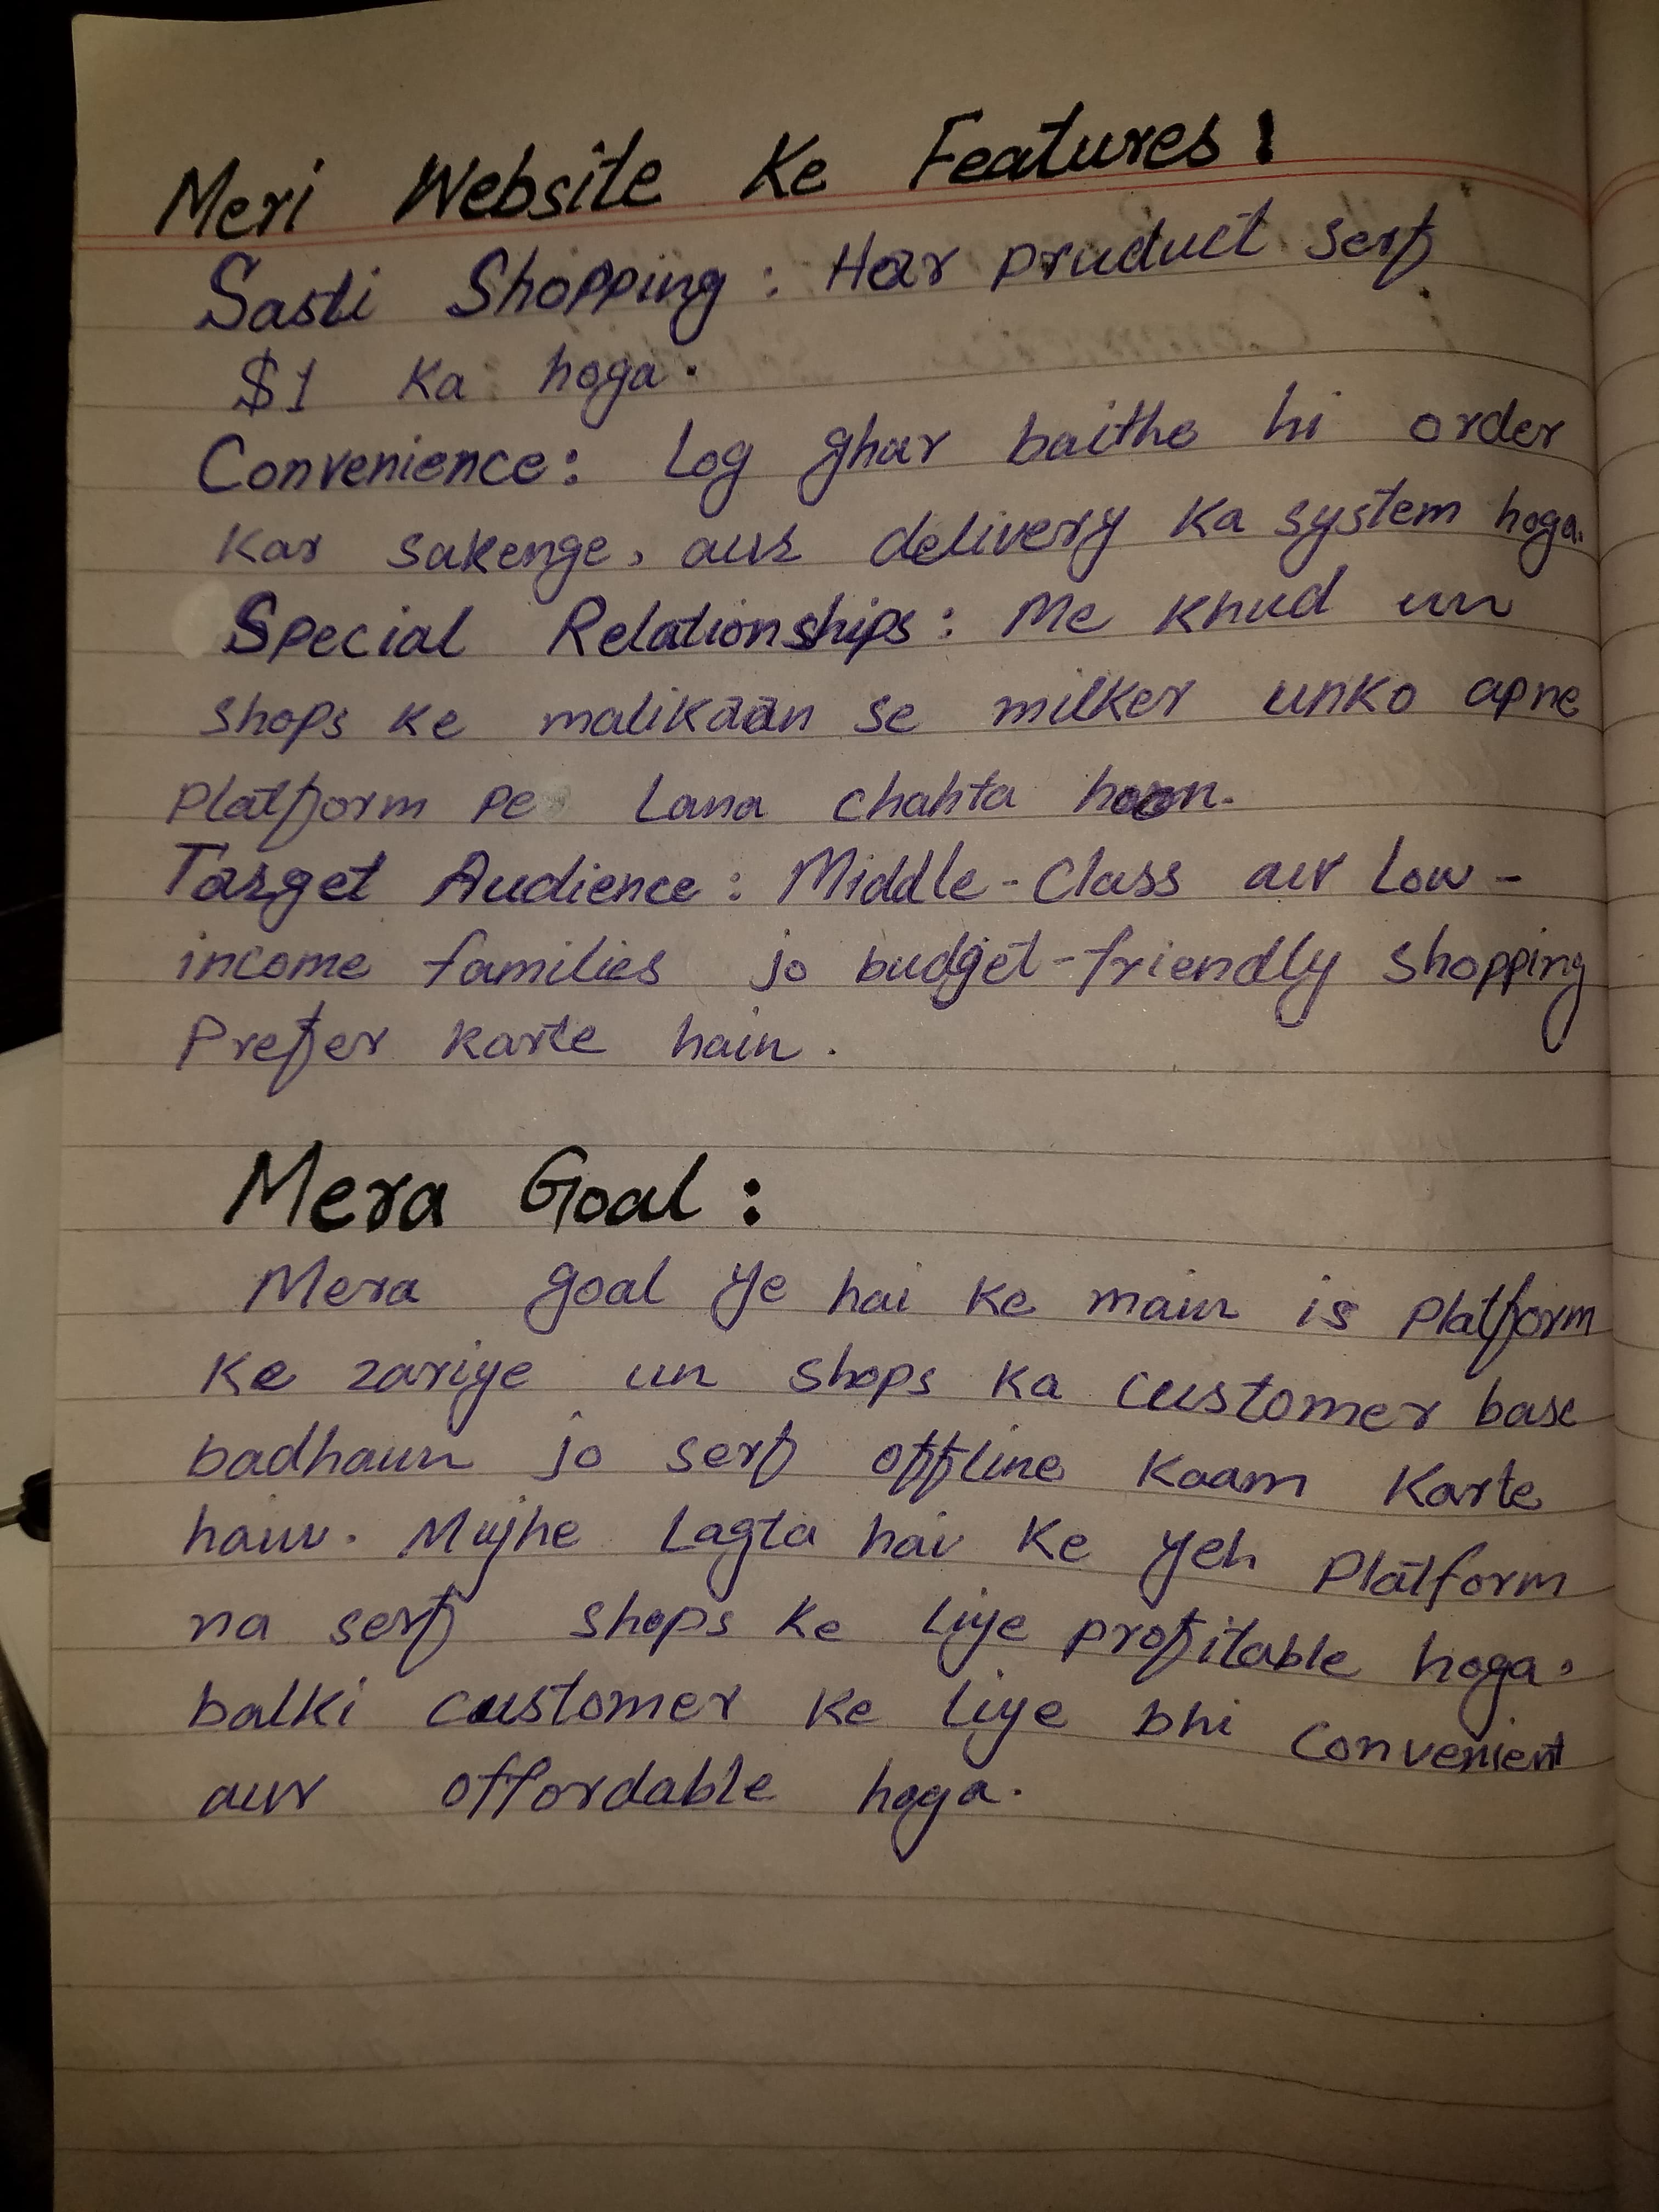 Meri Website Ke Features:
Sasti Shopping: Har product serf
$1 Ka hoga.
Convenience: Log ghar baithe hi order
Kar sakenge, aur delivery Ka system hoga.
Special Relationships: Me Khud un
shops ke malikaan se milker unko apne
Platform pe Lana chahta hoon.
Target Audience: Middle-Class aur Low-
income families jo budget-friendly shopping
Prefer karte hain.
Mera Goal:
Mera goal ye hai ke main is Platform
Ke zariye un shops Ka customer base
badhaun jo serf offline Kaam Karte
hain. Mujhe Lagta hai Ke yeh Platform
na serf shops Ke liye profitable hoga,
balki customer Ke liye bhi convenient
aur offordable hoga.